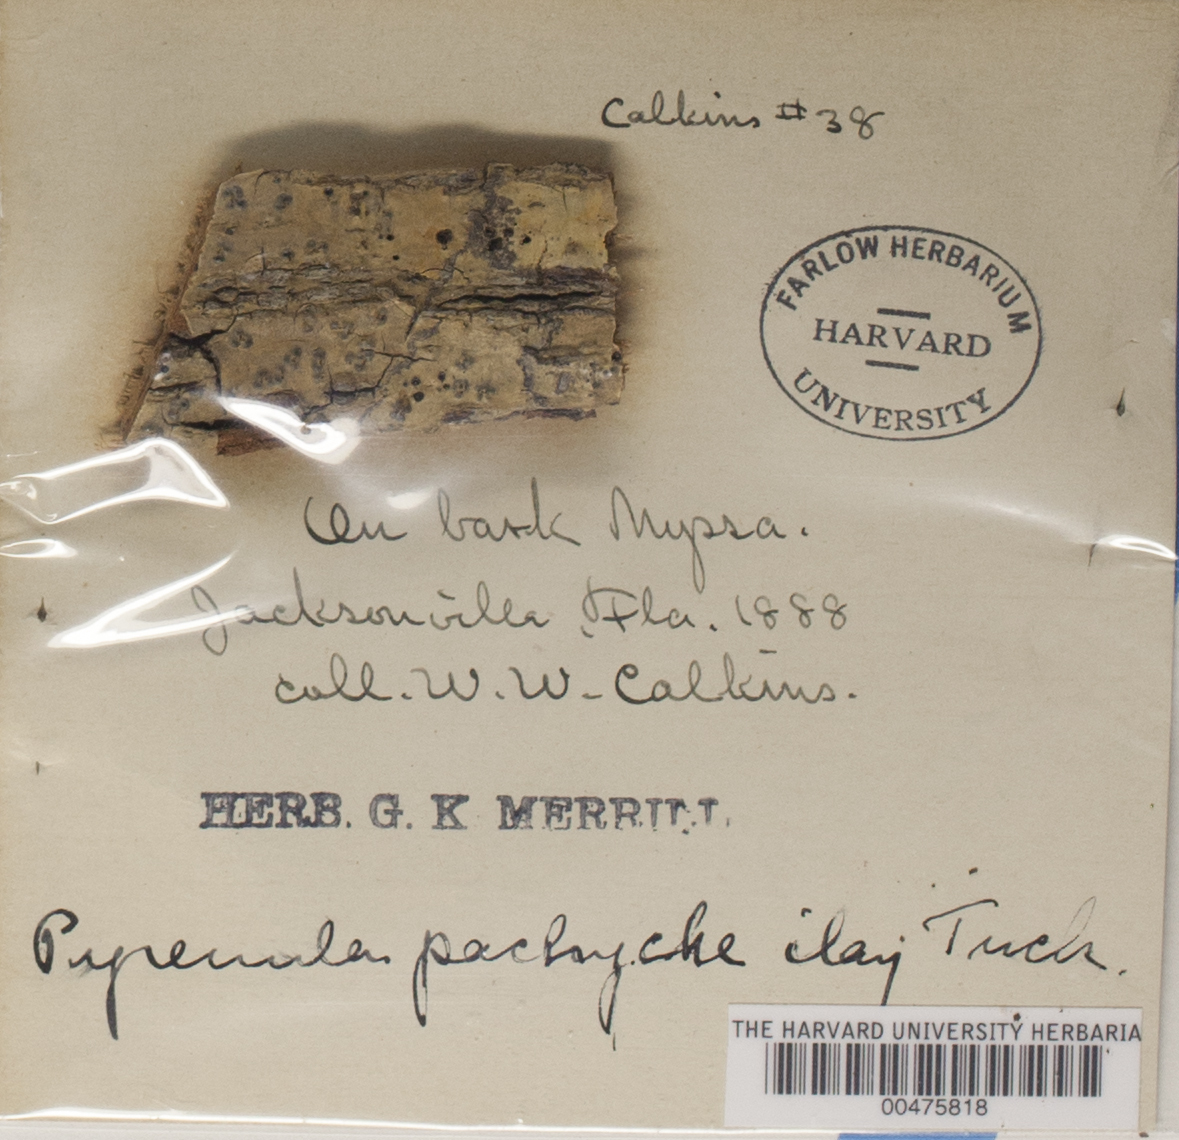 Calkins #38
FARLOW HERBARIUM
HARVARD
UNIVERSITY
On bark Nyssa.
Jacksonville, Fla. 1888
coll. W. W. Calkins.
HERB. G. K MERRILL.
Pyrenula pachyche ilaj Tuck.
THE HARVARD UNIVERSITY HERBARIA
00475818